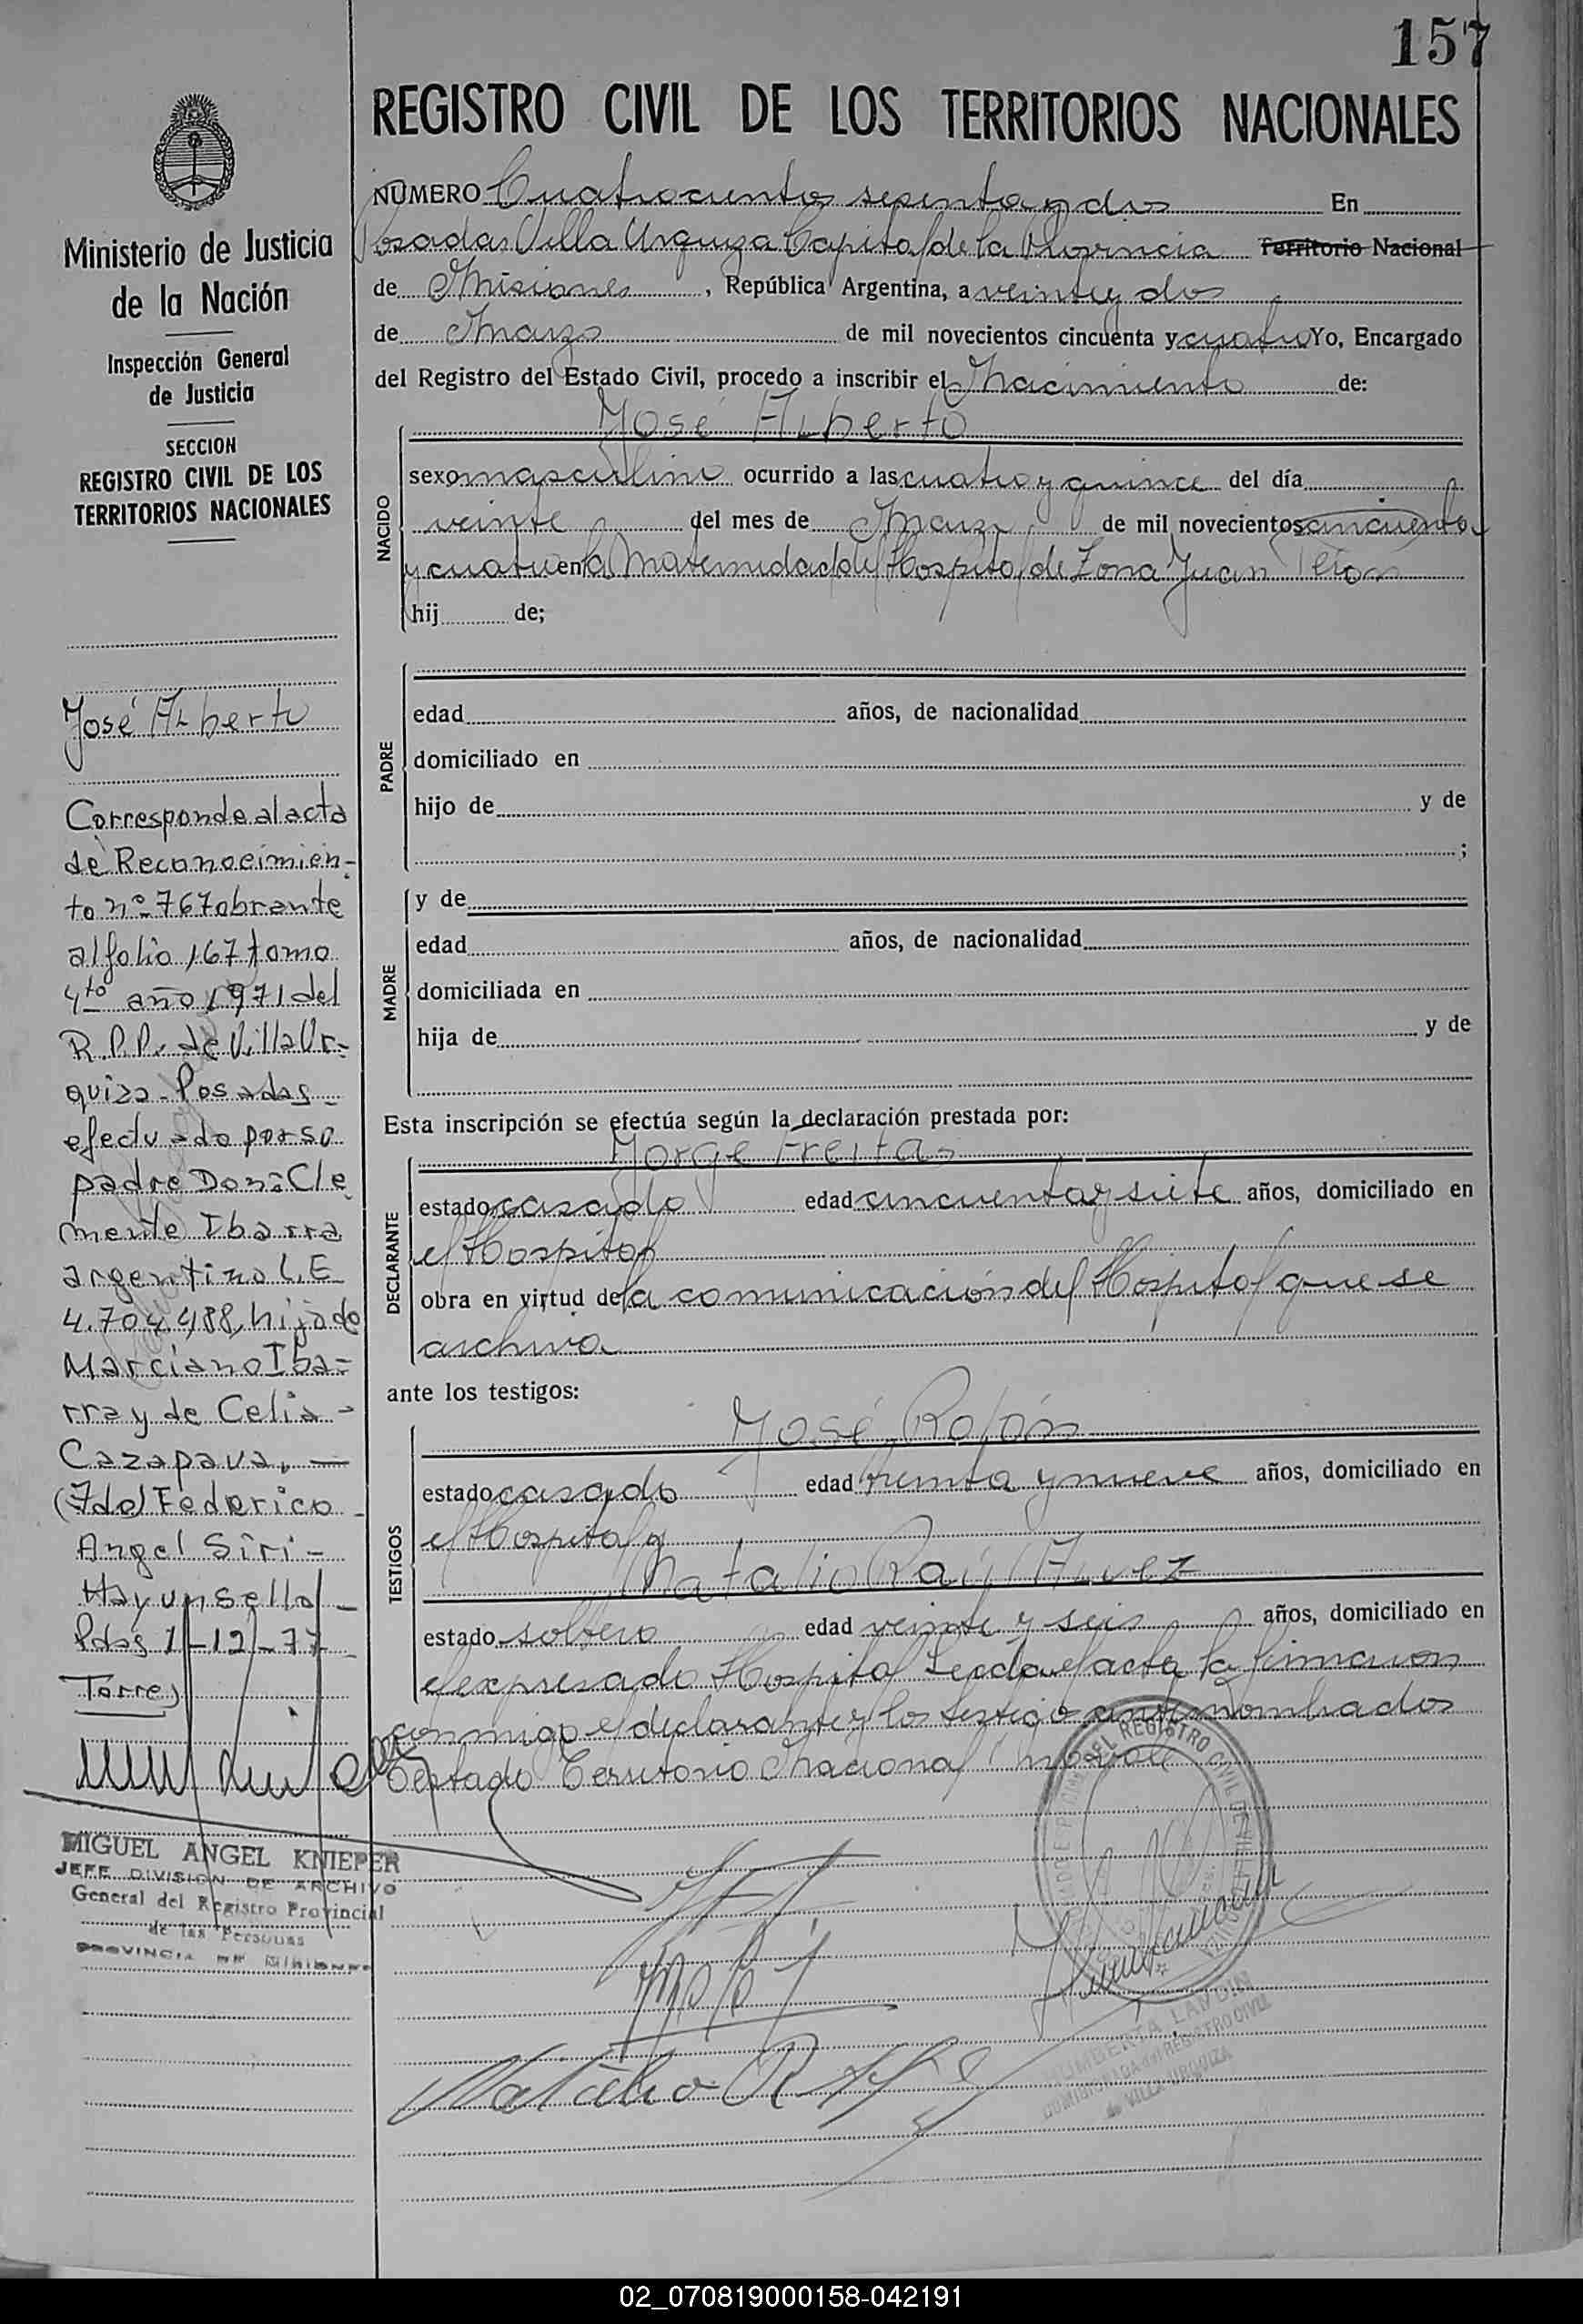 157
REGISTRO CIVIL DE LOS TERRITORIOS NACIONALES
NUMERO Cuatrocientos sesenta y dos En
Posadas Villa Urquiza Capital de la Provincia Territorio Nacional
de Misiones, República Argentina, a veinte y dos
de Marzo de mil novecientos cincuenta y cuatro Yo, Encargado
del Registro del Estado Civil, procedo a inscribir el Nacimiento de:
NACIDO
José Alberto
sexo masculino ocurrido a las cuatro y quince del día
veinte del mes de Marzo de mil novecientos cincuenta
y cuatro en la Maternidad del Hospital de Zona Juan Perón
hij de;
PADRE
edad años, de nacionalidad
domiciliado en
hijo de y de
;
MADRE
y de
edad años, de nacionalidad
domiciliada en
hija de y de
Esta inscripción se efectúa según la declaración prestada por:
DECLARANTE
Jorge Freitas
estado casado edad cincuenta y siete años, domiciliado en
el Hospital
obra en virtud de la comunicación del Hospital que se
archiva
ante los testigos:
TESTIGOS
José Rolón
estado casado edad treinta y nueve años, domiciliado en
el Hospital y
Natalio Raúl
estado soltero edad veinte y seis años, domiciliado en
el expresado Hospital Leida el acta la firmaron
conmigo el declarante y los testigos antenombrados
Testado Territorio Nacional
Natalio R
DEL REGISTRO CIVIL
LANDIN
REGISTRO CIVIL
de VILLA URQUIZA
Ministerio de Justicia
de la Nación
Inspección General
de Justicia
SECCION
REGISTRO CIVIL DE LOS
TERRITORIOS NACIONALES
José Alberto
Corresponde al acta
de Reconocimien-
to nº 767 obrante
al folio 167 tomo
4to año 1971 del
R.P.P. de Villa Ur-
quiza - Posadas -
efectuado por su
padre Don: Cle
mente Ibarra
argentino L.E
4.704.488, hijo de
Marciano Iba-
rra y de Celia -
Cazapava. —
(Fdo) Federico -
Angel Siri -
Hay un sello -
Pdas 1-12-77
Torres
MIGUEL ANGEL KNIEPER
JEFE DIVISION DE ARCHIVO
General del Registro Provincial
de las Personas
PROVINCIA DE MISIONES
02_070819000158-042191